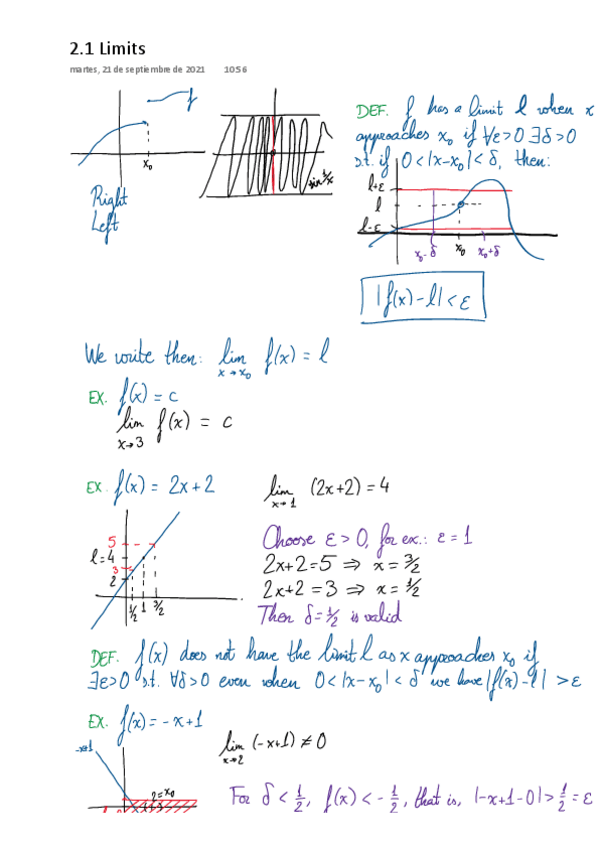 2.1 Limits
martes, 21 de septiembre de 2021 10:56
f
x₀
sin 1/x
Right
Left
DEF. f has a limit l when x
approaches x₀ if ∀ε>0 ∃δ>0
s.t. if 0<|x-x₀|<δ, then:
l+ε
l
l-ε
x₀-δ x₀ x₀+δ
|f(x)-l|<ε
We write then: lim x→x₀ f(x) = l
EX. f(x) = c
lim x→3 f(x) = c
EX. f(x) = 2x+2
lim x→1 (2x+2) = 4
5
l=4
3
2
1/2 1 3/2
Choose ε>0, for ex.: ε=1
2x+2=5 ⇒ x=3/2
2x+2=3 ⇒ x=1/2
Then δ=1/2 is valid
DEF. f(x) does not have the limit l as x approaches x₀ if
∃ε>0 s.t. ∀δ>0 even when 0<|x-x₀|<δ we have |f(x)-l|>ε
EX. f(x) = -x+1
-x+1
2=x₀
lim x→2 (-x+1) ≠ 0
For δ<1/2, f(x)<-1/2, that is, |-x+1-0|>1/2=ε